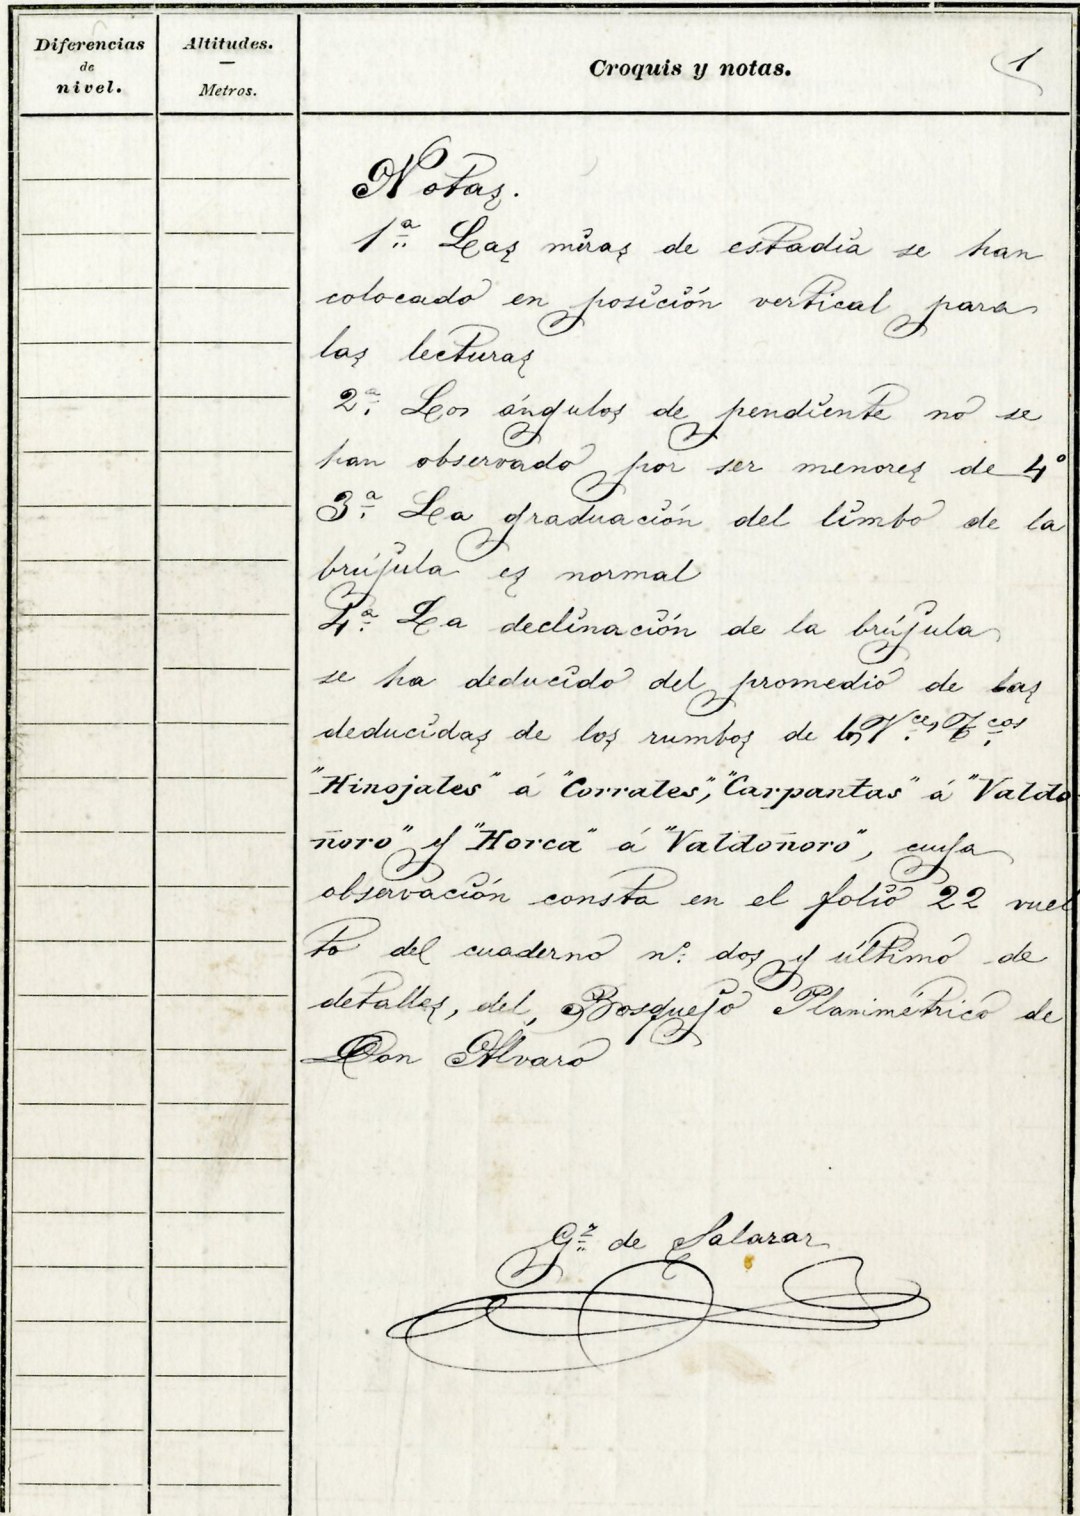 Diferencias
de
nivel.
Altitudes.
Metros.
Croquis y notas.
1
Notas.
1ª Las miras de estadía se han
colocado en posición vertical para
las lecturas
2ª Los ángulos de pendiente no se
han observado por ser menores de 4°
3ª La graduación del limbo de la
brújula es normal
4ª La declinación de la brújula
se ha deducido del promedio de las
deducidas de los rumbos de los V.ces T.cos
"Hinojales" á "Corrales", "Carpantas" á "Valdo-
ñoro" y "Horca" á "Valdoñoro", cuya
observación consta en el folio 22 vuel
to del cuaderno nº dos y último de
detalles, del, Bosquejo Planimétrico de
Don Alvaro
G.z de Salazar